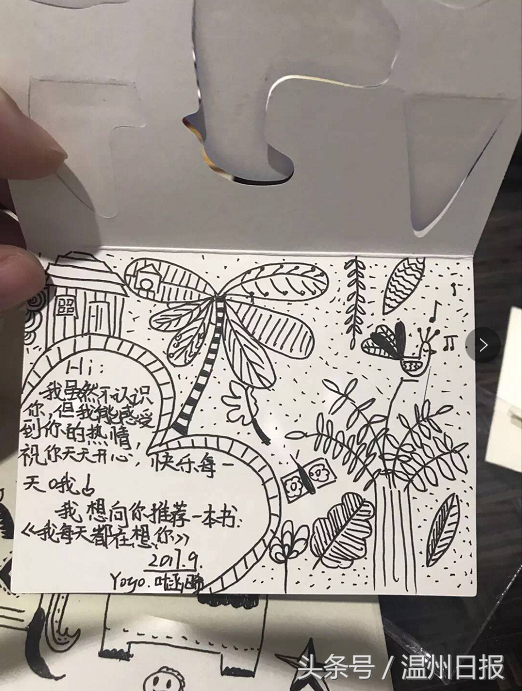 Hi:
我虽然不认识
你,但我能感受
到你的热情,
祝你天天开心,快乐每一
天哦
我想向你推荐一本书:
《我每天都在想你》
2017.9
Yoyo.
头条号/温州日报